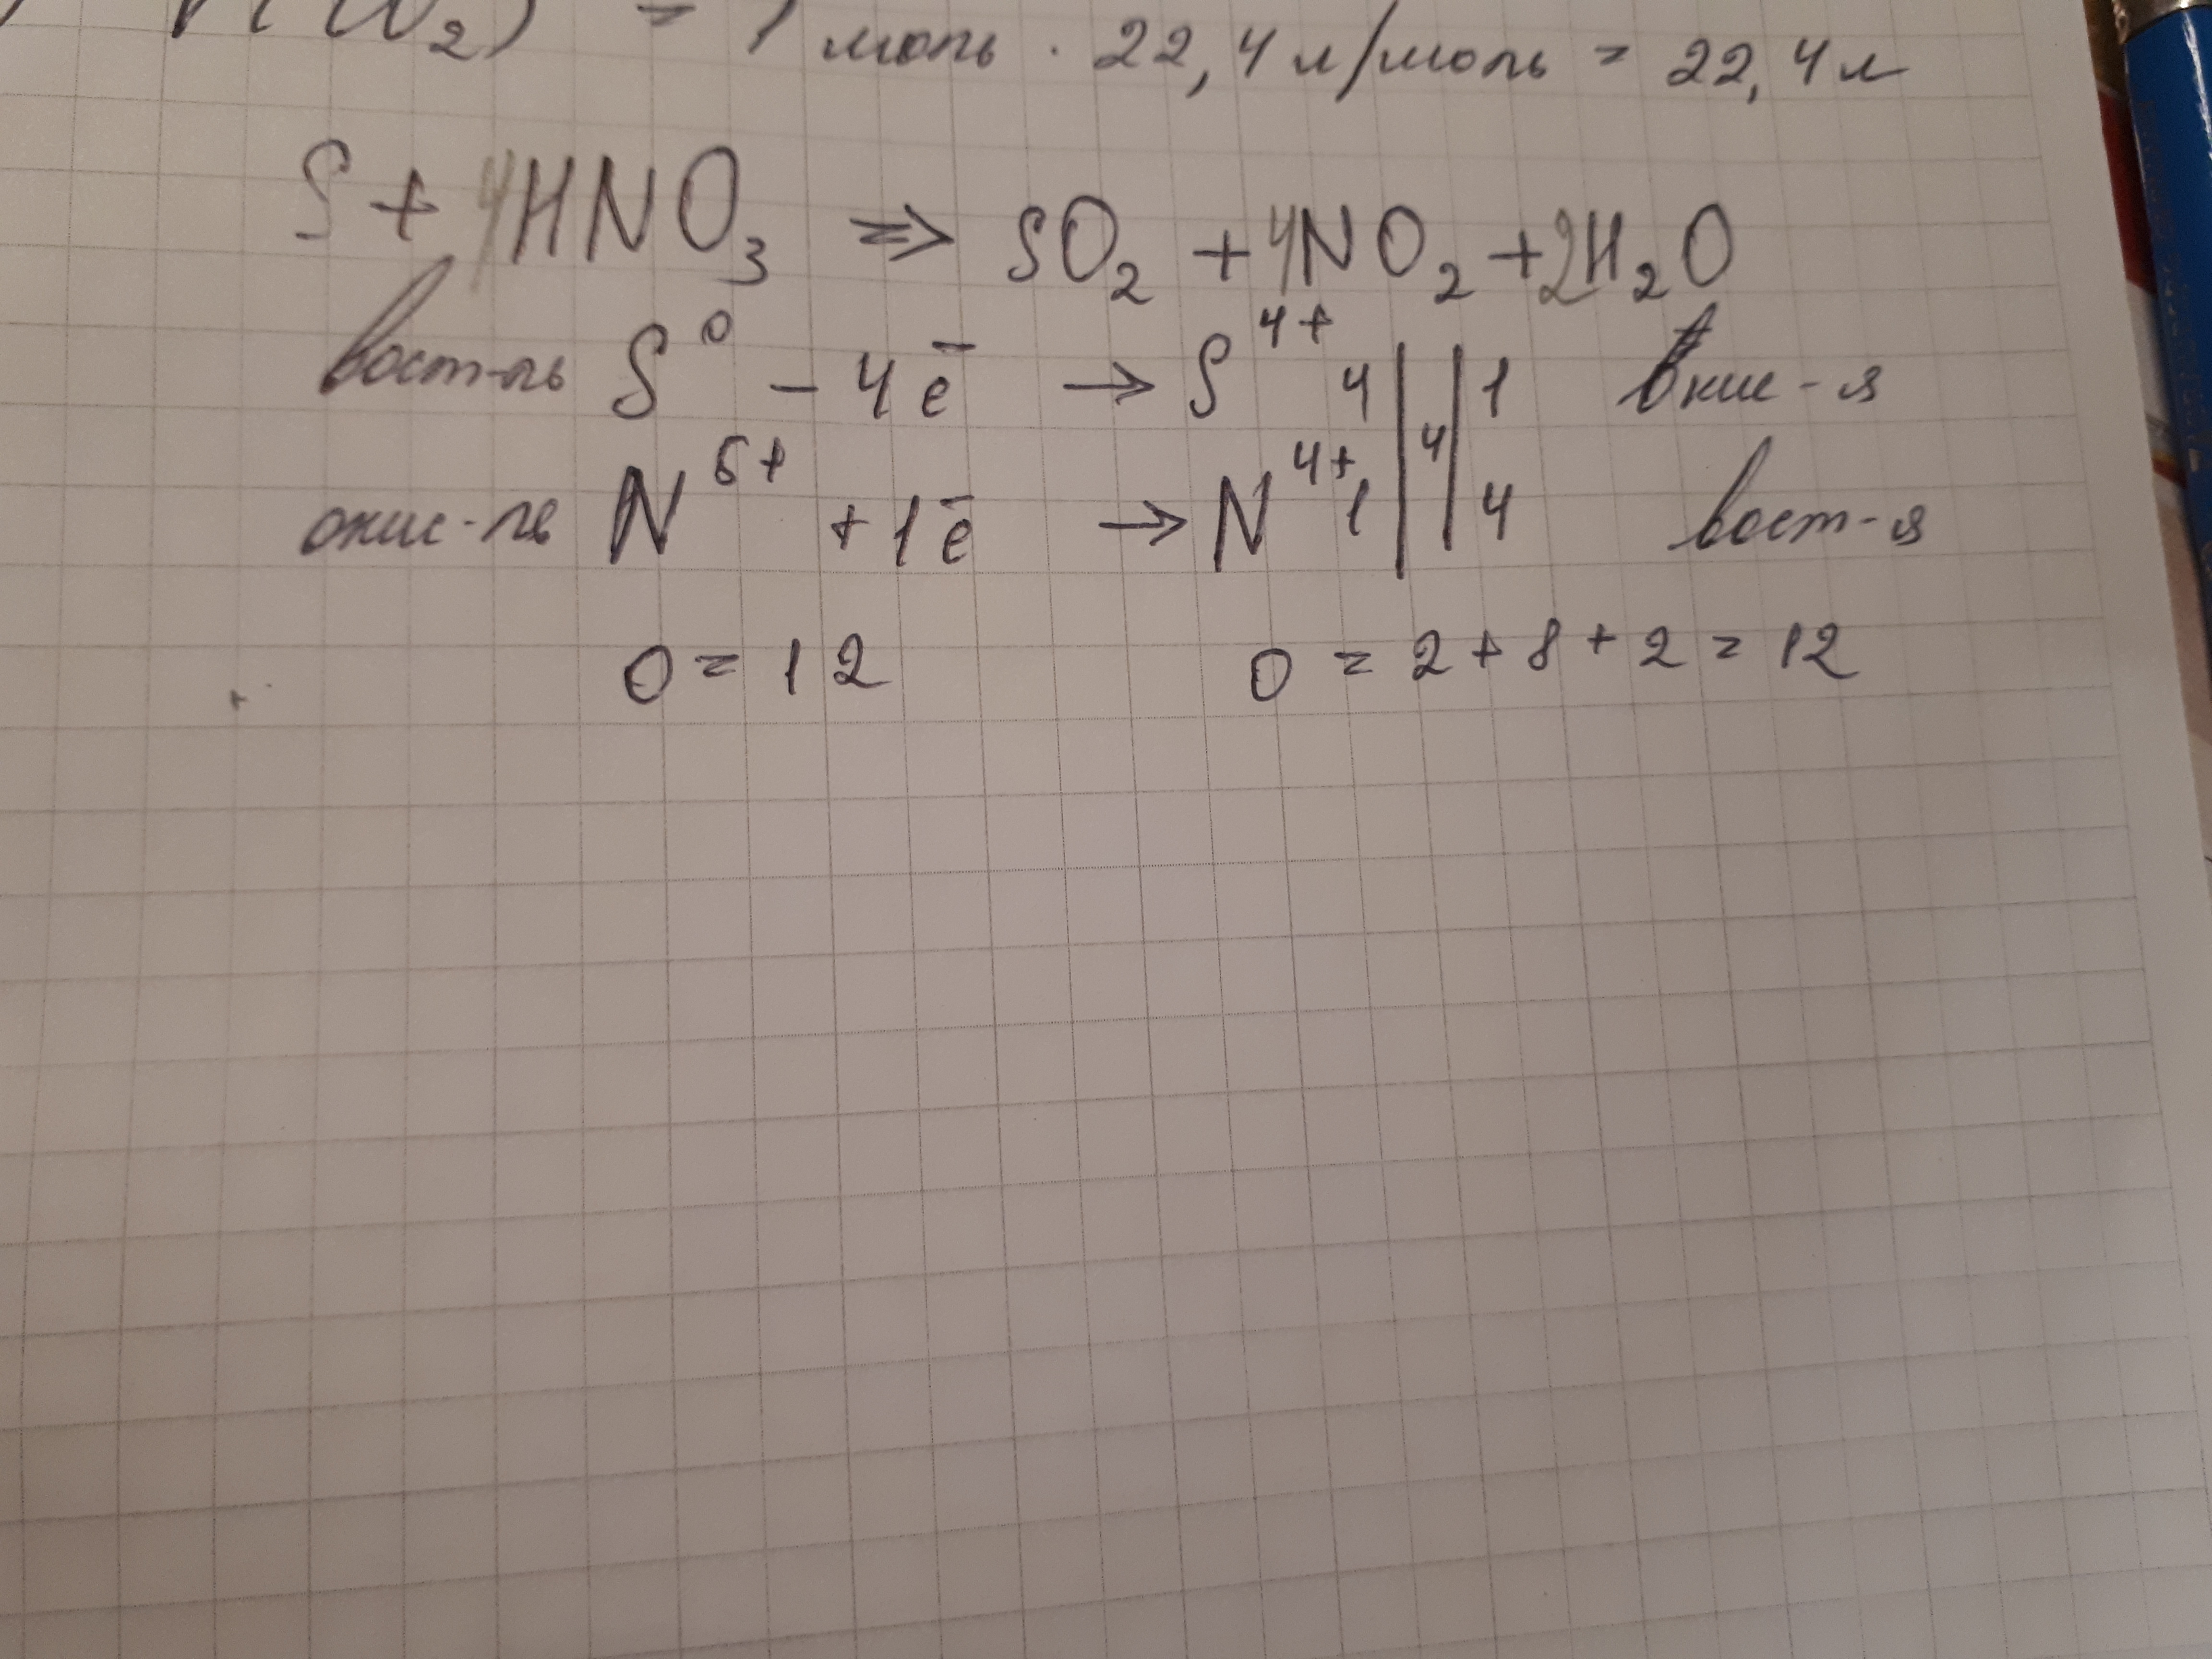 = 1 моль · 22,4 л/моль = 22,4 л
S + 4HNO₃ => SO₂ + 4NO₂ + 2H₂O
вост-ль S⁰ - 4ē → S⁴⁺ 4 | 4 | 1 окис-я
окис-ль N⁵⁺ + 1ē → N⁴⁺ 1 | | 4 вост-я
O = 12 O = 2 + 8 + 2 = 12